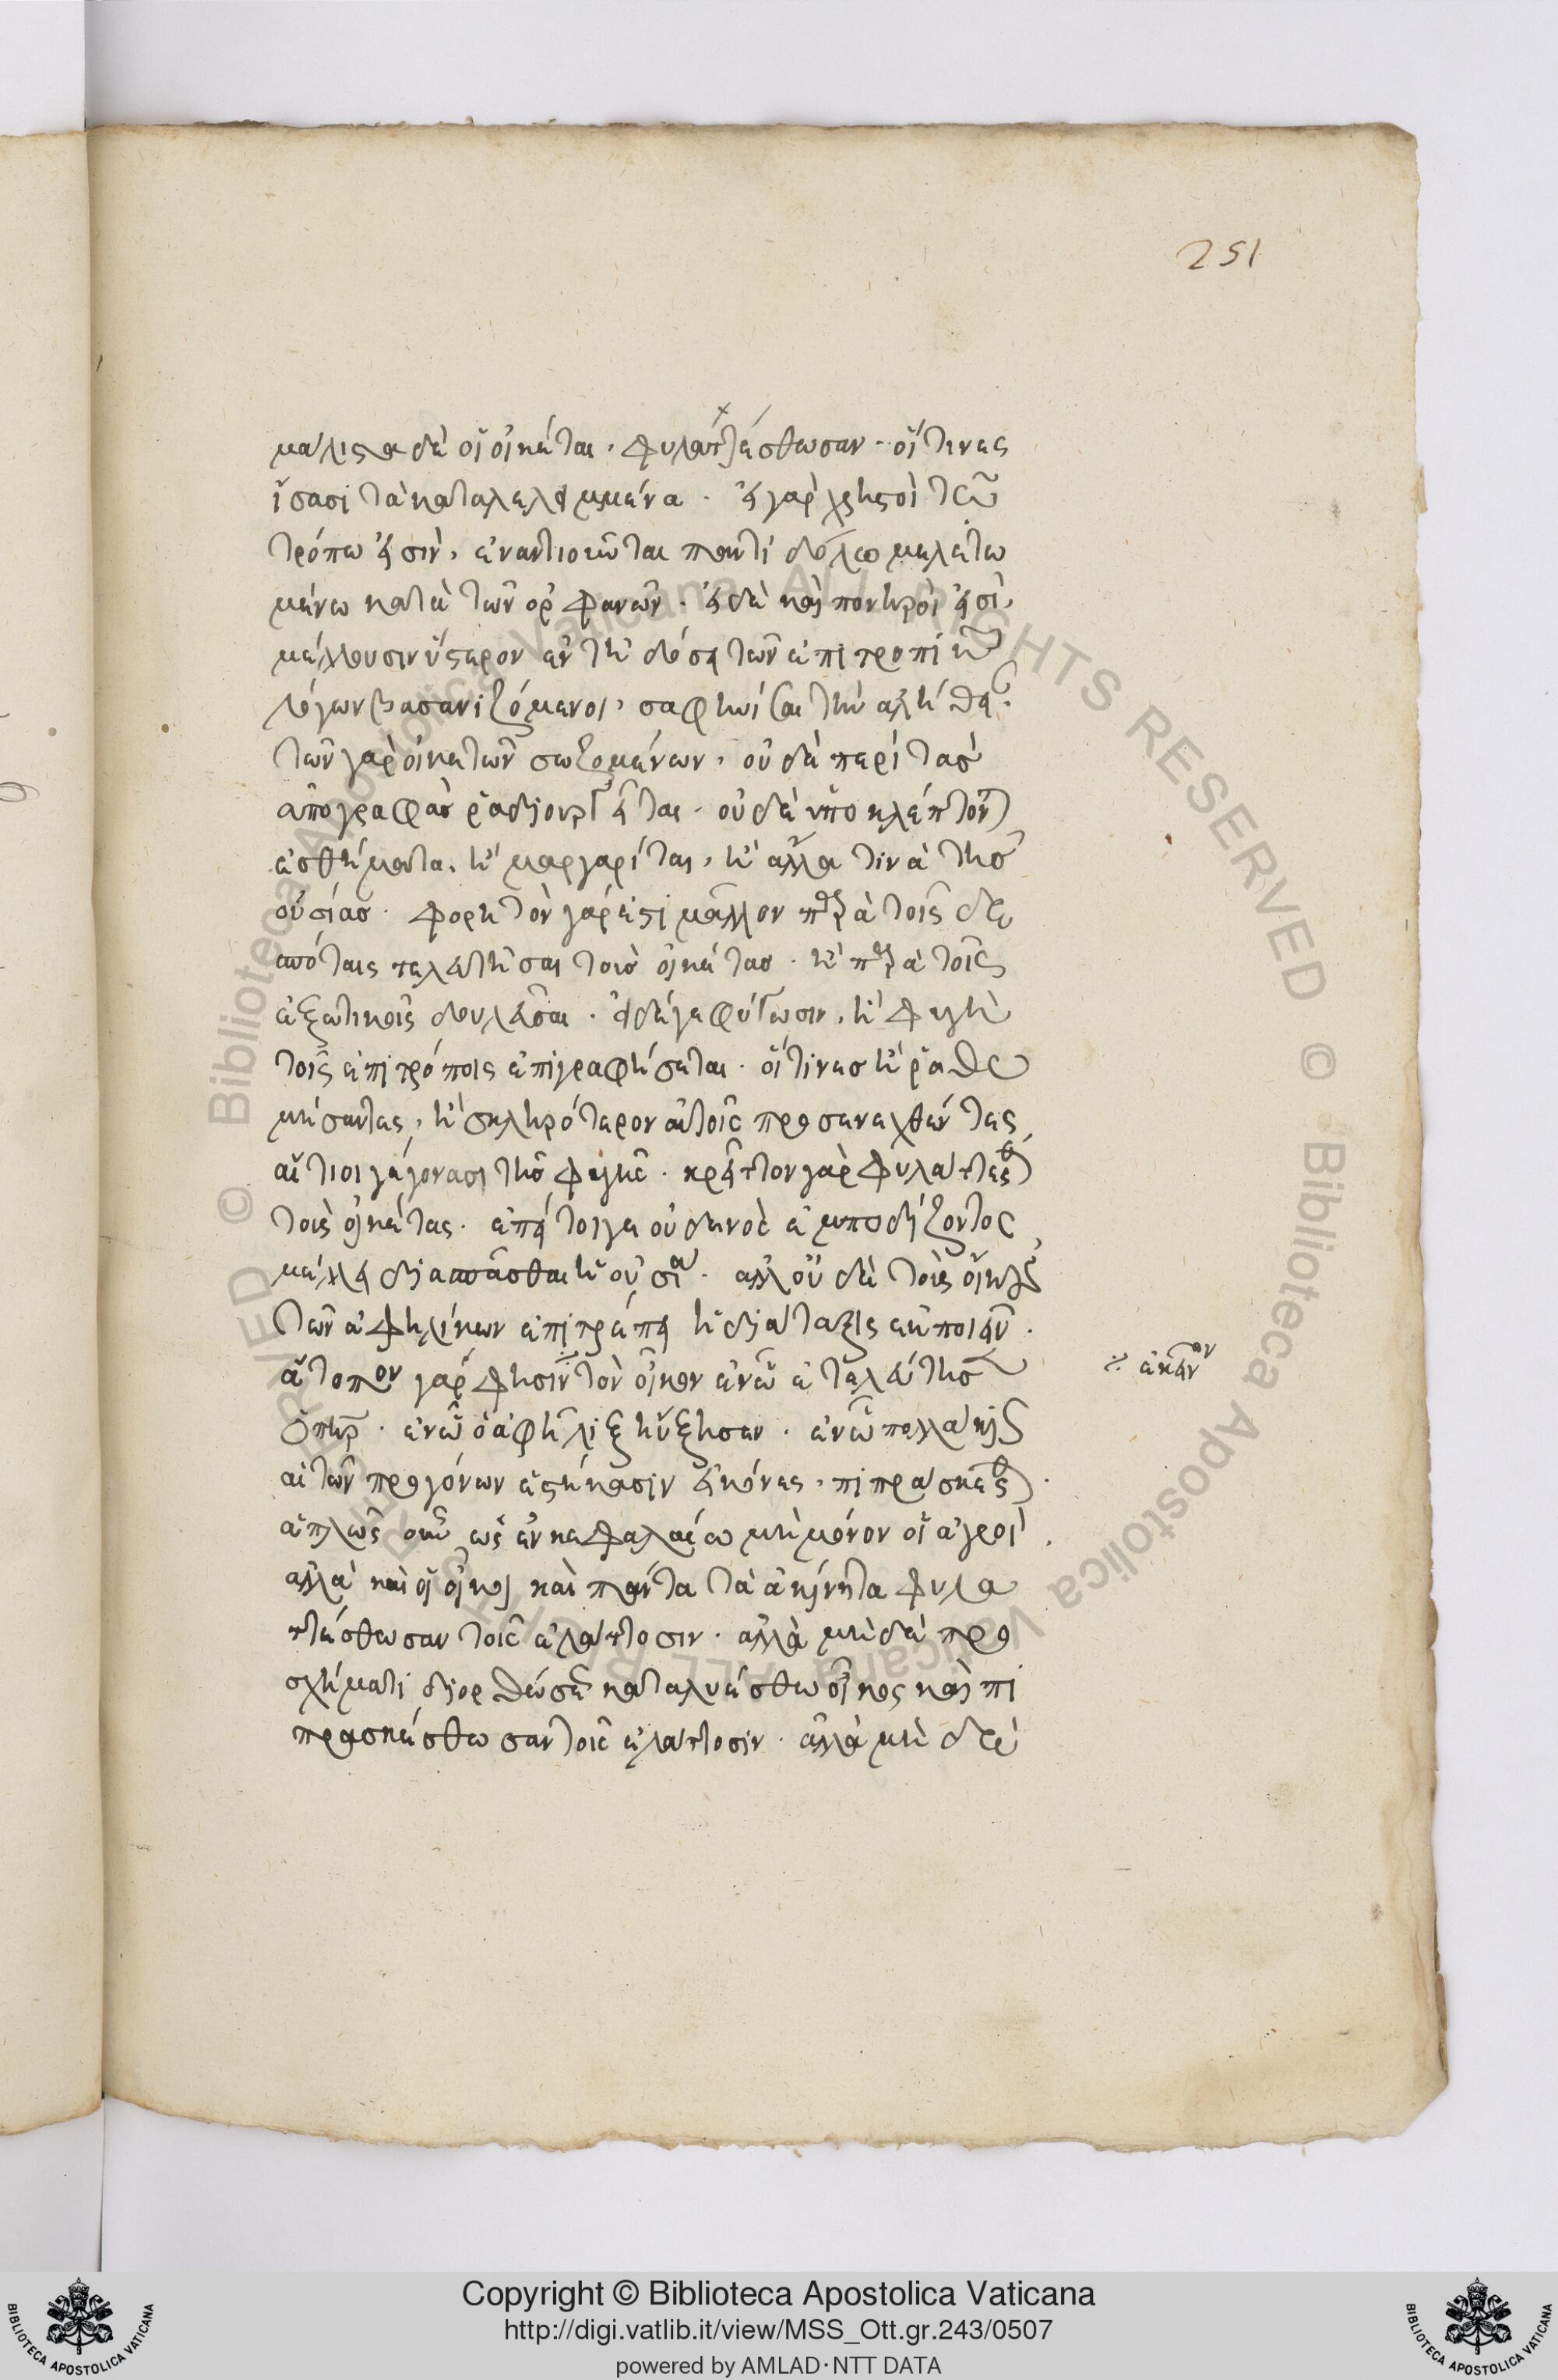 251
μάλιστα δὲ οἱ οἰκέται, φυλαττέσθωσαν. οἵτινες
ἴσασι τὰ καταλελειμμένα. εἰ γὰρ χρηστοὶ τῶ
τρόπω εἰσὶν, ἐναντιοῦται παντὶ δόλω μελετω
μένω κατὰ τῶν ὀρφανῶν. εἰ δὲ καὶ πονηροὶ εἰσὶ,
μέλλουσιν ὕστερον ἐν τῆ δόσει τῶν ἐπιτροπικῶν
λόγων βασανιζόμενοι, σαφηνίσαι τὴν ἀλήθειαν.
τῶν γὰρ οἰκετῶν σωζομένων, οὐδὲ περὶ τὰς
ἀπογραφὰς ῥαδιουργεῖται. οὐδὲ ὑποκλέπτονται
ἐσθήματα, ἢ μαργαρίται, ἢ ἄλλα τινὰ τῆς
οὐσίας. φορητὸν γάρ ἐστι μᾶλλον παρὰ τοῖς δε
σπόταις τελευτῆσαι τοὺς οἰκέτας. ἢ παρὰ τοῖς
ἐξωτικοῖς δουλεῦσαι. εἰ δέ γε φύγωσιν, ἡ φυγὴ
τοῖς ἐπιτρόποις ἐπιγραφήσεται. οἵτινες ἢ ῥαθυ
μήσαντες, ἢ σκληρότερον αὐτοῖς προσενεχθέντες,
αἴτιοι γεγόνασι τῆς φυγῆς. κρεῖττον γὰρ φυλάττεσθαι
τοὺς οἰκέτας. ἐπεί τοιγε οὐδενὸς ἐμποδίζοντος,
μέλλει διασπᾶσθαι ἡ οὐσία. ἀλλ' οὐδὲ τοὺς οἴκους
τῶν ἀφηλίκων ἐπιτρέπει ἡ διάταξις ἐκποιεῖν.
ἄτοπον γάρ φησιν τὸν οἶκον ἐν ὧ ἐτελεύτησεν
ὁ πατὴρ. ἐν ὧ ὁ ἀφῆλιξ ηὔξησεν. ἐν ὧ πολλάκις
αἱ τῶν προγόνων ἑστήκασιν εἰκόνες, πιπράσκεσθαι.
ἁπλῶς οὖν ὡς ἐν κεφαλαίω μὴ μόνον οἱ ἀγροὶ,
ἀλλὰ καὶ οἱ οἶκοι καὶ πάντα τὰ ἀκίνητα φυλα
ττέσθωσαν τοῖς ἐλάττοσιν. ἀλλὰ μὴ δὲ προ
σχήματι διορθώσεως καταλυέσθω οἶκος καὶ πι
πρασκέσθωσαν τοῖς ἐλάττοσιν. ἀλλὰ μὴ δὲ
ἐκεῖνον
Copyright © Biblioteca Apostolica Vaticana
http://digi.vatlib.it/view/MSS_Ott.gr.243/0507
powered by AMLAD·NTT DATA